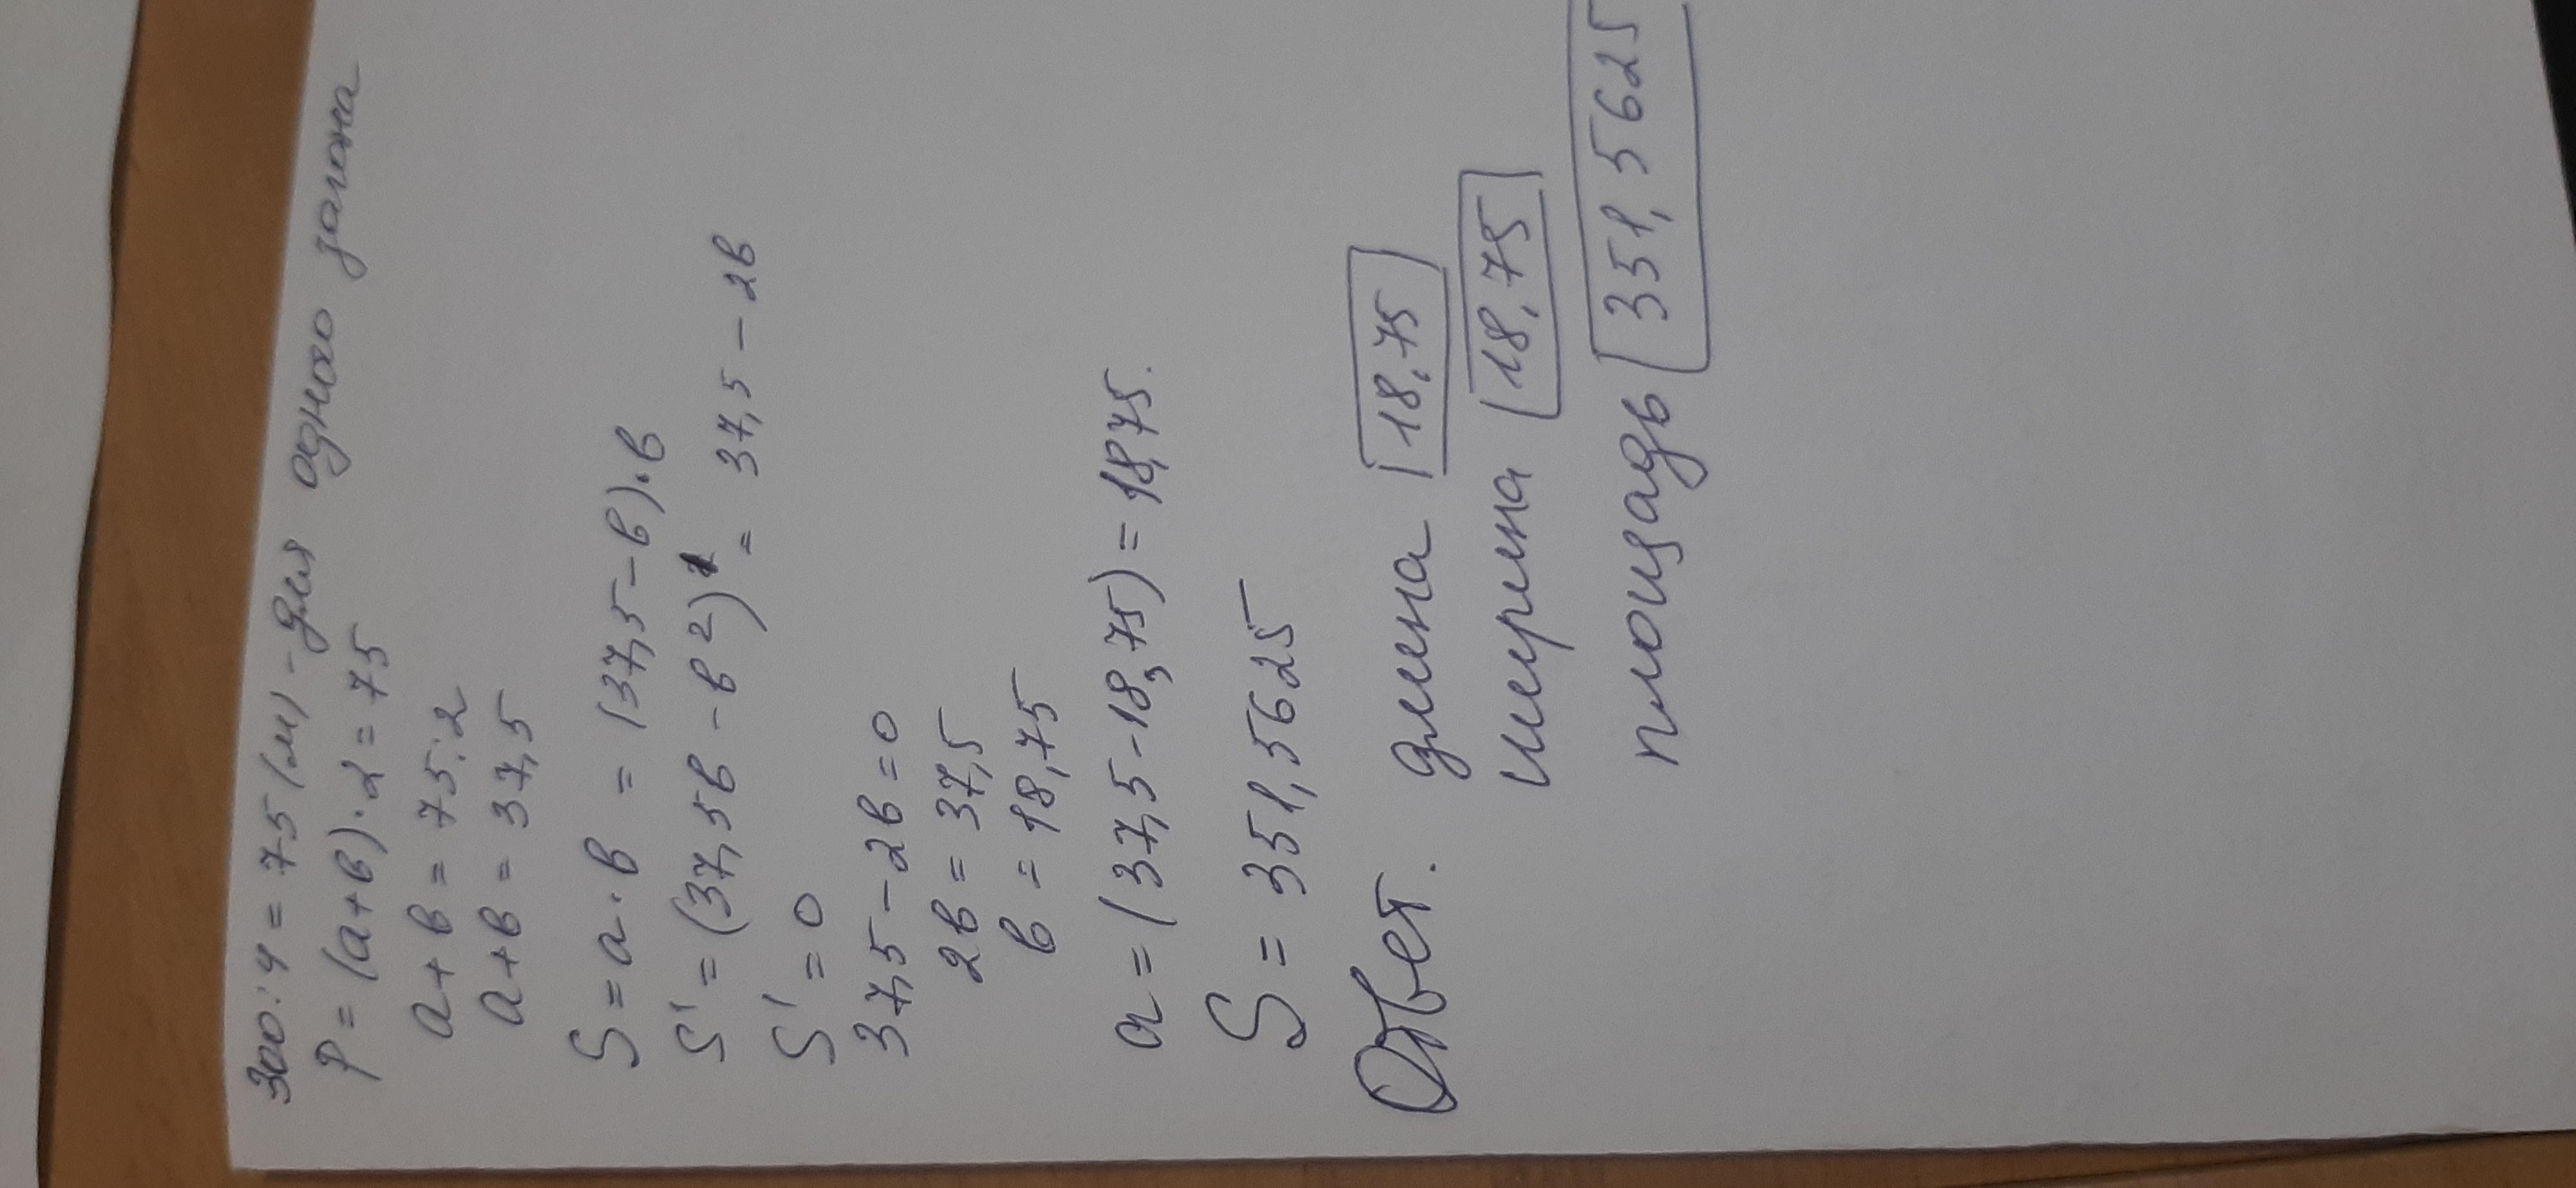 300:4 = 75 (м) - для одного загона
P = (a+b)·2 = 75
a+b = 75:2
a+b = 37,5
S = a·b = (37,5-b)·b
S' = (37,5b - b²)' = 37,5 - 2b
S' = 0
37,5 - 2b = 0
2b = 37,5
b = 18,75
a = (37,5-18,75) = 18,75.
S = 351,5625
Ответ. длина 18,75
ширина 18,75
площадь 351,5625